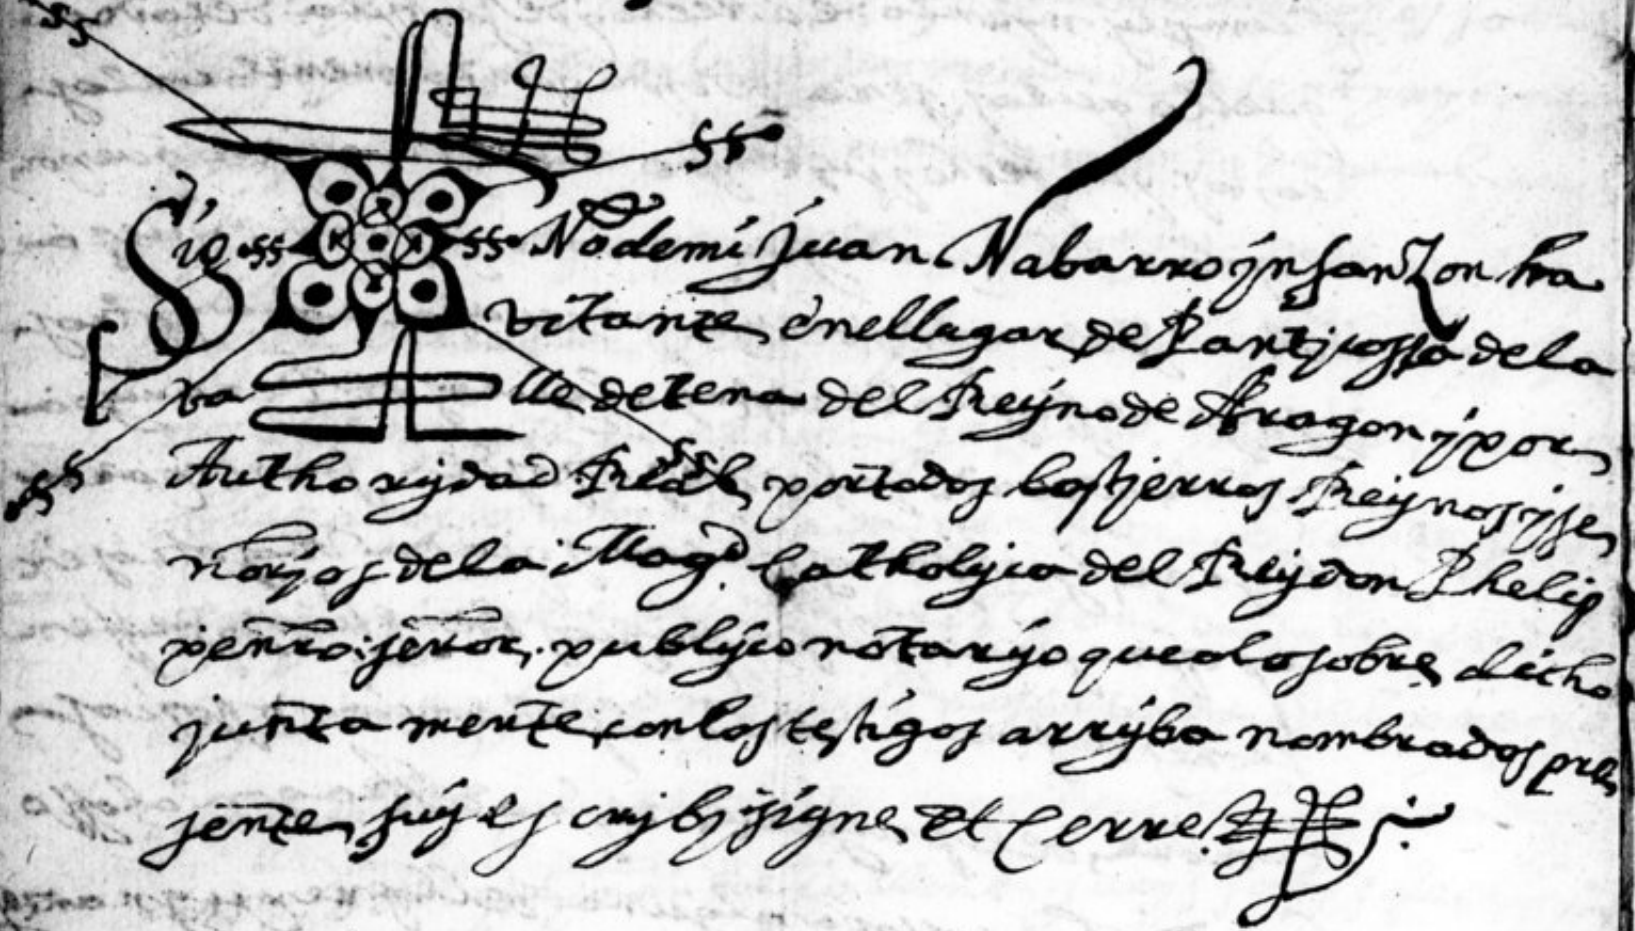 Sig no de mi Juan Nabarro jnfanzon ha
vitante en el lugar de Pantjcossa de la
va lle de tena del Reyno de Aragon y por
Authorydad Real por todos los tjerros Reynos y se
norjos de la Magd Catholyca del Rey don Phelip
pe nro señor publyco notaryo que a lo sobre dicho
junta mente con los testigos arryba nombrados pre
sente fuy es crybj y signe Et Cerre